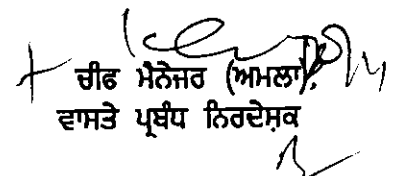 ਚੀਫ ਮੈਨੇਜਰ (ਅਮਲਾ),
ਵਾਸਤੇ ਪ੍ਰਬੰਧ ਨਿਰਦੇਸ਼ਕ